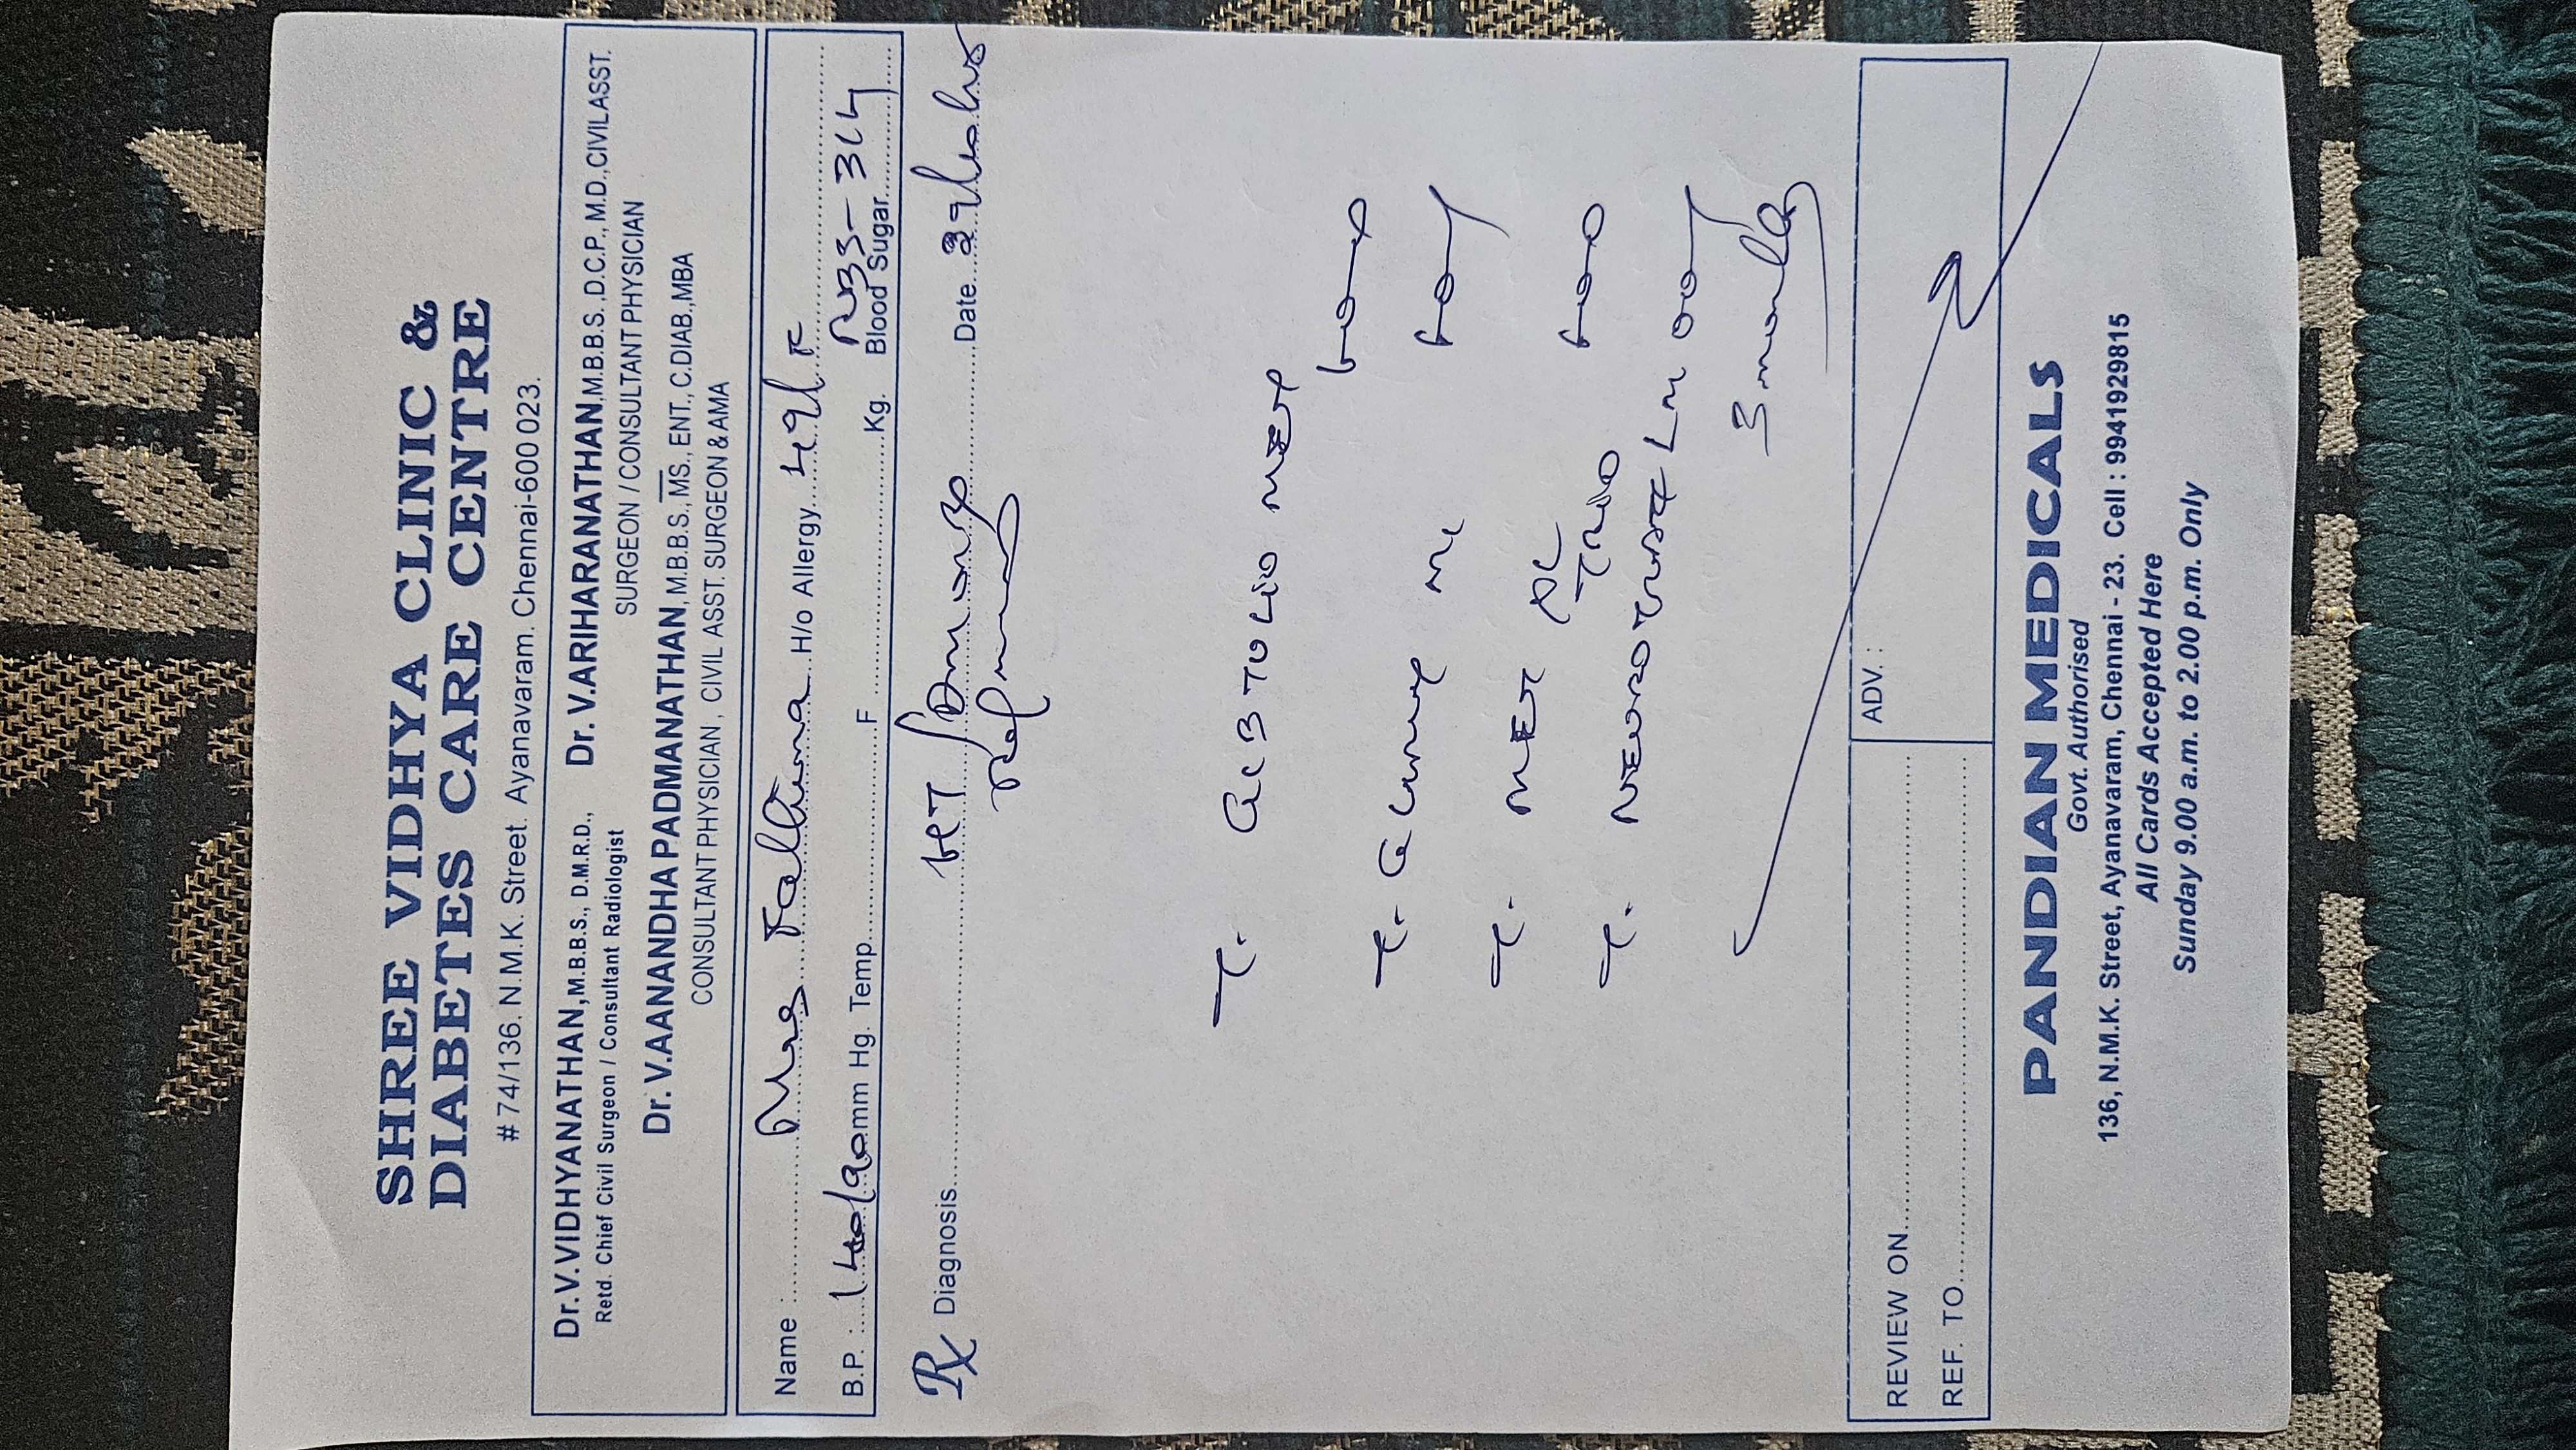 SHREE VIDHYA CLINIC &
DIABETES CARE CENTRE
# 74/136, N.M.K. Street. Ayanavaram, Chennai-600 023.
Dr.V.VIDHYANATHAN,M.B.B.S., D.M.R.D.,
Retd. Chief Civil Surgeon / Consultant Radiologist
Dr. V.ARIHARANATHAN,M.B.B.S.,D.C.P., M.D.,CIVIL ASST.
SURGEON / CONSULTANT PHYSICIAN
Dr. V.AANANDHA PADMANATHAN, M.B.B.S., MS., ENT., C.DIAB.,MBA
CONSULTANT PHYSICIAN, CIVIL ASST. SURGEON & AMA
Name : Mrs Fathima H/o Allergy. 49/F
B.P. : 140/90 mm Hg. Temp F Kg. Blood Sugar RBS- 314
Rx Diagnosis Date
T. MEXP
T. M1
T. MET XL
TRIO
T. 
3 months
REVIEW ON
REF. TO
ADV. :
PANDIAN MEDICALS
Govt. Authorised
136, N.M.K. Street, Ayanavaram, Chennai - 23. Cell : 9941929815
All Cards Accepted Here
Sunday 9.00 a.m. to 2.00 p.m. Only